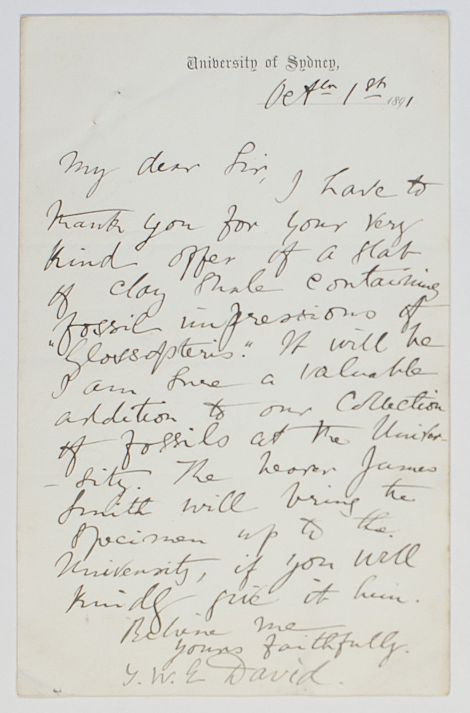 University of Sydney,
Octber 1st 1891
My dear Sir,
I have to
thank you for your very
kind offer of a slab
of clay shale containing
fossil impressions of
"Glossopteris." It will be
I am sure a valuable
addition to our Collection
of fossils at the Univer-
-sity. The bearer James
Smith will bring the
specimen up to the
University, if you will
kindly give it him.
Believe me
yours faithfully.
T. W. E David.